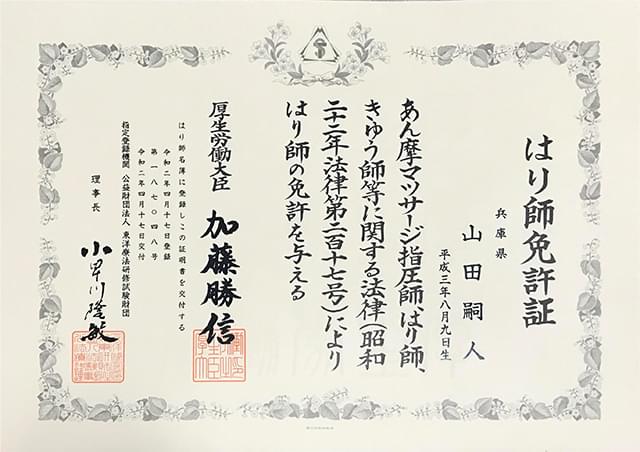 はり師免許証
兵庫県
山田嗣人
平成三年八月九日生
あん摩マツサージ指圧師、はり師、
きゆう師等に関する法律(昭和
二十二年法律第二百十七号)により
はり師の免許を与える
厚生労働大臣 加藤勝信
はり師名簿に登録しこの証明書を交付する
令和二年四月十七日登録
第一八七〇四八号
令和二年四月十七日交付
指定登録機関 公益財団法人 東洋療法研修試験財団
理事長 小川隆敏